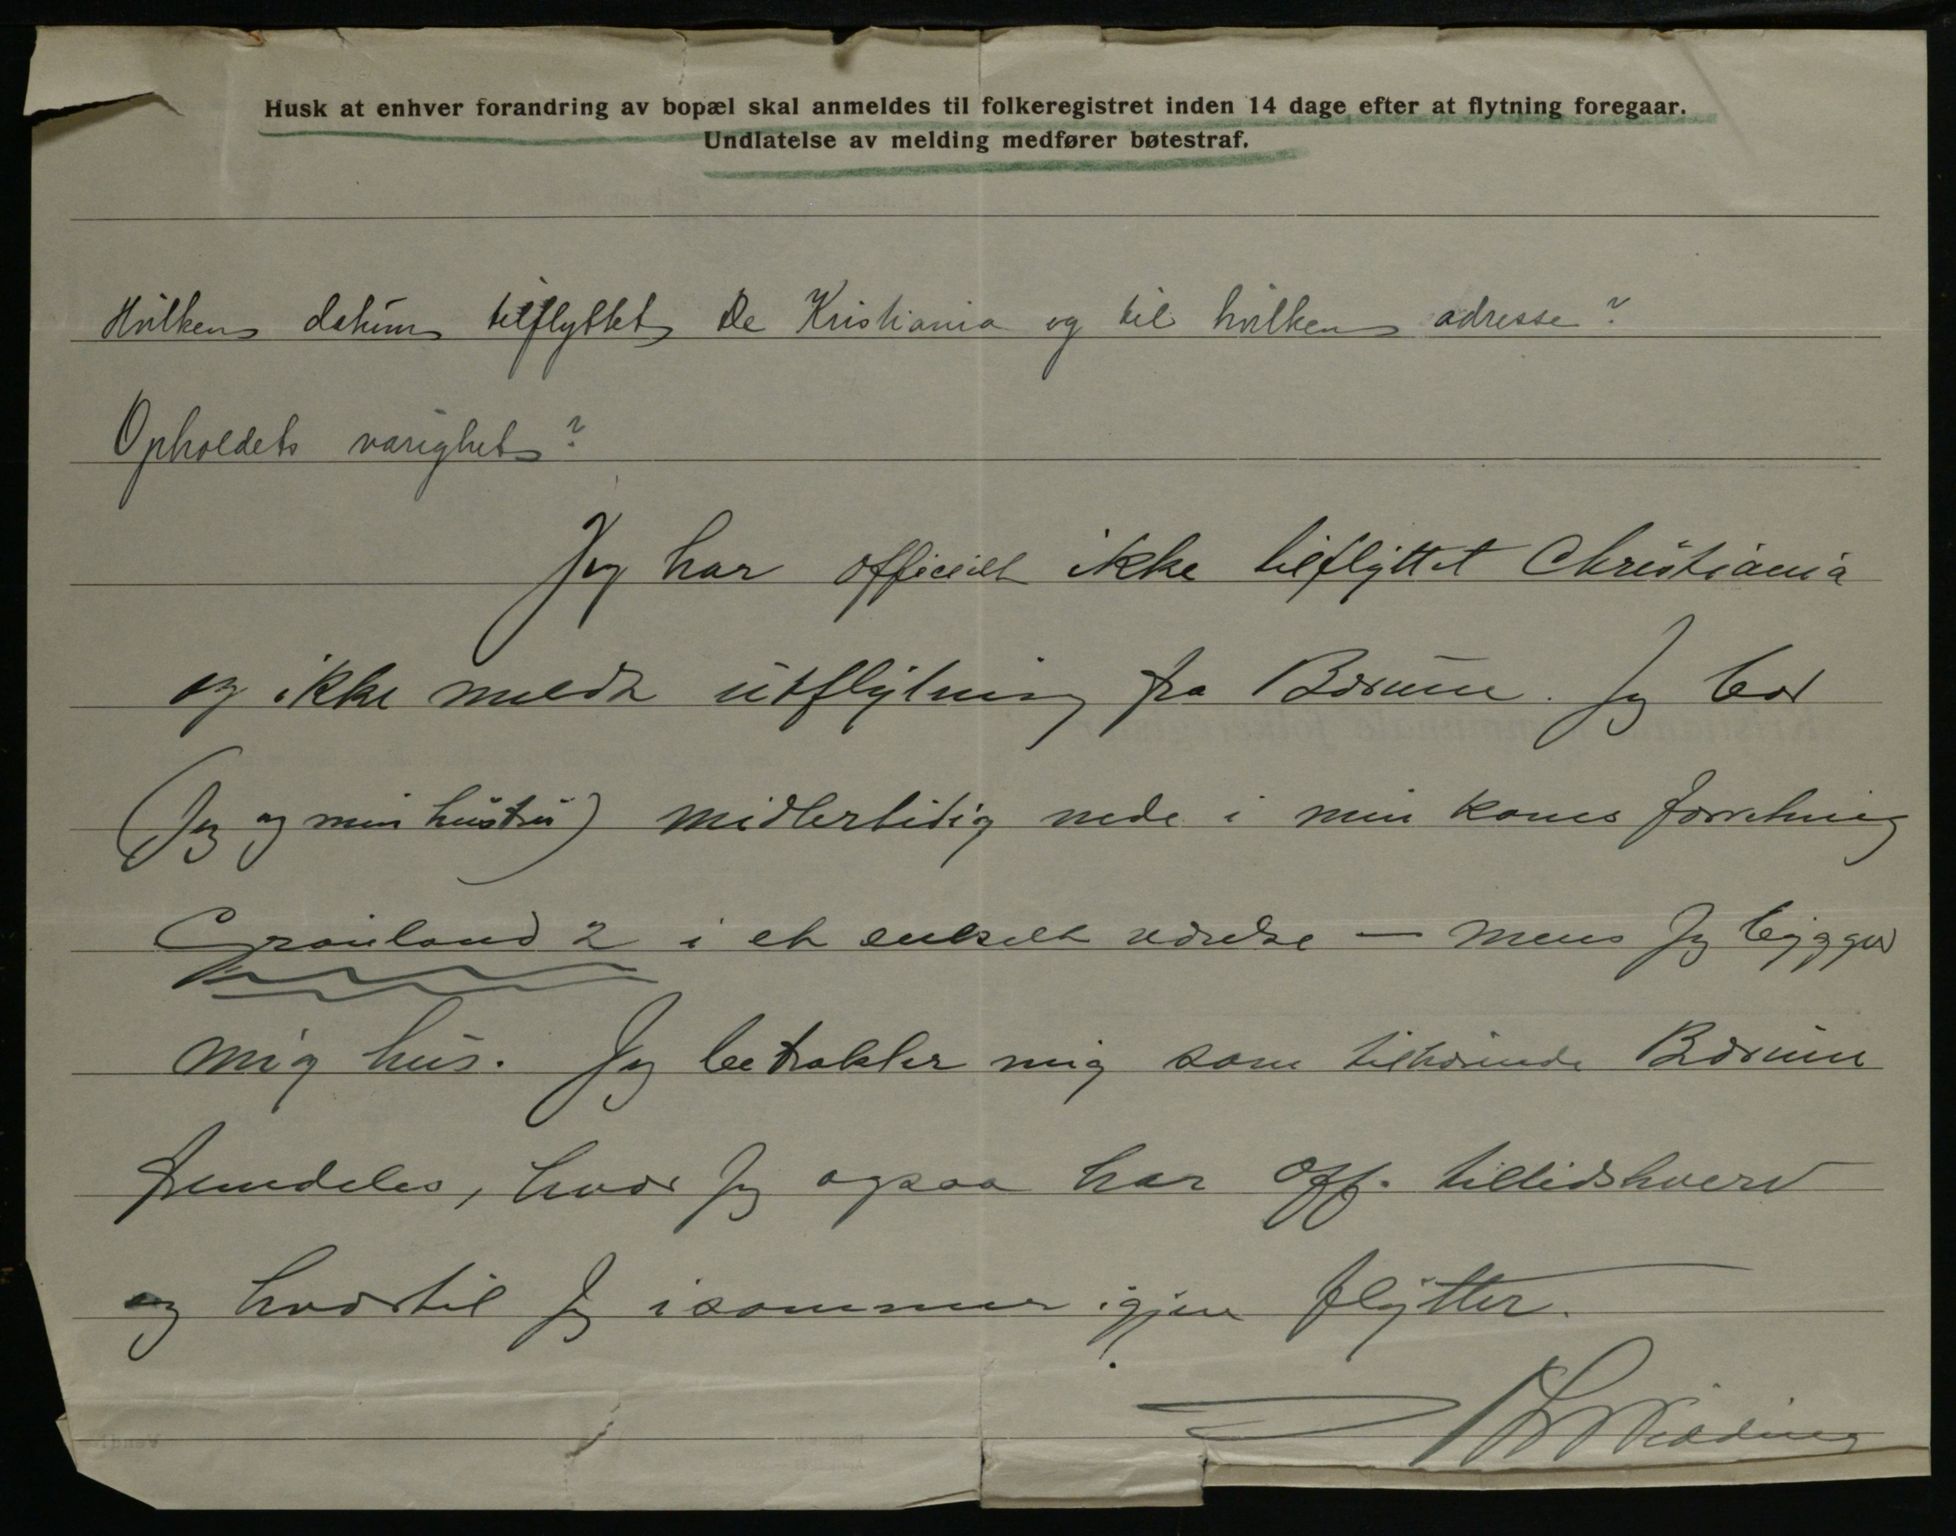 Husk at enhver forandring av bopæl skal anmeldes til folkeregistret inden 14 dage efter at flytning foregaar.
Undlatelse av melding medfører bøtestraf.
Hvilken datum tilflyttet De Kristiania og til hvilken adresse?
Opholdets varighet?
Jeg har officielt ikke tilflyttet Christiania
og ikke meldt utflytning fra Bærum. Jeg bor
(Jeg og min hustru) midlertidig nede i min kones forretning
Grønland 2 i et enkelt værelse — mens Jeg bygger
mig hus. Jeg betrakter mig som tilhørende Bærum
fremdeles, hvor Jeg ogsaa har off. tillidshverv
og hvortil Jeg isommer igjen flytter.